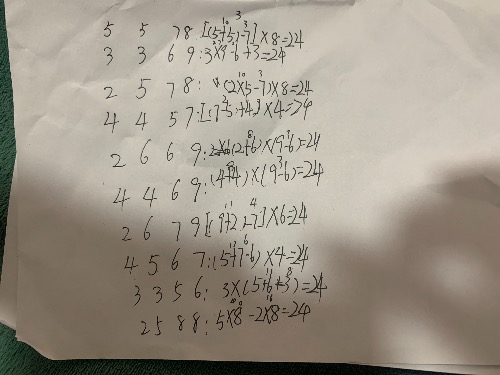 5 5 7 8 [(5+5)-7]×8=24
3 3 6 9: 3×9-6+3=24
2 5 7 8: (2×5-7)×8=24
4 4 5 7: [(7-5)+4]×4=24
2 6 6 9: (2+6)×(9-6)=24
4 4 6 9: (4+4)×(9-6)=24
2 6 7 9 [(9+2)-7]×6=24
4 5 6 7: (5+7-6)×4=24
3 3 5 6: 3×(5+6+3)=24
2 5 8 8: 5×8-2×8=24